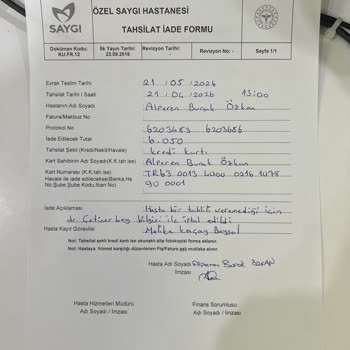 SAYGI
ÖZEL SAYGI HASTANESİ
TAHSİLAT İADE FORMU
Doküman Kodu: KU.FR.12
İlk Yayın Tarihi: 23.09.2016
Revizyon Tarihi: -
Revizyon No: -
Sayfa 1/1
Evrak Teslim Tarihi 21.05.2026
Tahsilat Tarihi / Saati 21.04.2026 13:00
Hastanın Adı Soyadı Alperen Burak Özkan
Fatura/Makbuz No
Protokol No 6203683 6203686
İade Edilecek Tutar 6.050
Tahsilat Şekli (Kredi/Nakit/Havale) kredi kartı
Kart Sahibinin Adı Soyadı(K.K.tah.ise) Alperen Burak Özkan
Kart Numarası (K.K.tah.ise)
Havale ile iade edilecekse(Banka,Hs No,Şube,Şube Kodu,Iban No)
90 0001
İade Açıklaması Hasta bir tahlil veremediği için
dr. Cetiner bey bilgisi ile iptal edildi
Hasta Kayıt Görevlisi Melike Kaçay Baysal
Not: Tahsilat şekli kredi kartı ise okunaklı slip fotokopisi forma eklenir.
Not: Hastaya hizmet karşılığı düzenlenen Fiş/Fatura aslı mutlaka alınır.
Hasta Adı Soyadı Alperen Burak ÖZKAN
İmzası
Hasta Hizmetleri Müdürü
Adı Soyadı / İmzası
Finans Sorumlusu
Adı Soyadı / İmzası